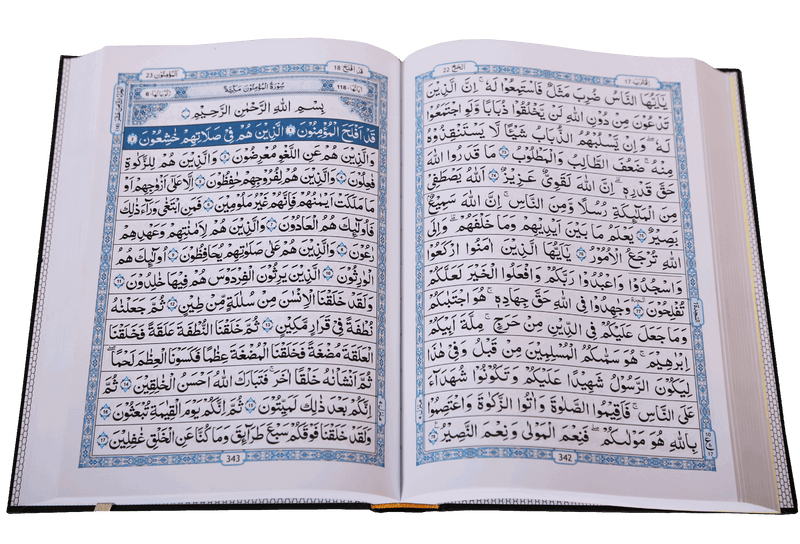 اقترب ١٧
الحج ٢٢
يٰۤاَيُّهَا النَّاسُ ضُرِبَ مَثَلٌ فَاسْتَمِعُوْا لَهٗ ؕ اِنَّ الَّذِيْنَ
تَدْعُوْنَ مِنْ دُوْنِ اللّٰهِ لَنْ يَّخْلُقُوْا ذُبَابًا وَّلَوِ اجْتَمَعُوْا
لَهٗ ؕ وَاِنْ يَّسْلُبْهُمُ الذُّبَابُ شَيْـًٔا لَّا يَسْتَنْقِذُوْهُ
مِنْهُ ؕ ضَعُفَ الطَّالِبُ وَالْمَطْلُوْبُ ۝٧٣ مَا قَدَرُوا اللّٰهَ
حَقَّ قَدْرِهٖ ؕ اِنَّ اللّٰهَ لَقَوِيٌّ عَزِيْزٌ ۝٧٤ اَللّٰهُ يَصْطَفِيْ
مِنَ الْمَلٰٓئِكَةِ رُسُلًا وَّمِنَ النَّاسِ ؕ اِنَّ اللّٰهَ سَمِيْعٌۢ
بَصِيْرٌ ۝٧٥ يَعْلَمُ مَا بَيْنَ اَيْدِيْهِمْ وَمَا خَلْفَهُمْ ؕ وَاِلَى
اللّٰهِ تُرْجَعُ الْاُمُوْرُ ۝٧٦ يٰۤاَيُّهَا الَّذِيْنَ اٰمَنُوا ارْكَعُوْا
وَاسْجُدُوْا وَاعْبُدُوْا رَبَّكُمْ وَافْعَلُوا الْخَيْرَ لَعَلَّكُمْ
تُفْلِحُوْنَ ۝٧٧ وَجَاهِدُوْا فِي اللّٰهِ حَقَّ جِهَادِهٖ ؕ هُوَ اجْتَبٰىكُمْ
وَمَا جَعَلَ عَلَيْكُمْ فِي الدِّيْنِ مِنْ حَرَجٍ ؕ مِلَّةَ اَبِيْكُمْ
اِبْرٰهِيْمَ ؕ هُوَ سَمّٰىكُمُ الْمُسْلِمِيْنَ مِنْ قَبْلُ وَفِيْ هٰذَا
لِيَكُوْنَ الرَّسُوْلُ شَهِيْدًا عَلَيْكُمْ وَتَكُوْنُوْا شُهَدَآءَ
عَلَى النَّاسِ ۖ فَاَقِيْمُوا الصَّلٰوةَ وَاٰتُوا الزَّكٰوةَ وَاعْتَصِمُوْا
بِاللّٰهِ هُوَ مَوْلٰىكُمْ ۚ فَنِعْمَ الْمَوْلٰى وَنِعْمَ النَّصِيْرُ ۝٧٨
342
قد افلح 18
المؤمنون 23
اٰيَاتُهَا 118
سُوْرَةُ الْمُؤْمِنُوْنَ مَكِّيَّةٌ
6
بِسْمِ اللّٰهِ الرَّحْمٰنِ الرَّحِيْمِ
قَدْ اَفْلَحَ الْمُؤْمِنُوْنَ ۝١ الَّذِيْنَ هُمْ فِيْ صَلَاتِهِمْ خٰشِعُوْنَ ۝٢
وَالَّذِيْنَ هُمْ عَنِ اللَّغْوِ مُعْرِضُوْنَ ۝٣ وَالَّذِيْنَ هُمْ لِلزَّكٰوةِ
فٰعِلُوْنَ ۝٤ وَالَّذِيْنَ هُمْ لِفُرُوْجِهِمْ حٰفِظُوْنَ ۝٥ اِلَّا عَلٰٓى اَزْوَاجِهِمْ اَوْ
مَا مَلَكَتْ اَيْمَانُهُمْ فَاِنَّهُمْ غَيْرُ مَلُوْمِيْنَ ۝٦ فَمَنِ ابْتَغٰى وَرَآءَ ذٰلِكَ
فَاُولٰٓئِكَ هُمُ الْعٰدُوْنَ ۝٧ وَالَّذِيْنَ هُمْ لِاَمٰنٰتِهِمْ وَعَهْدِهِمْ
رٰعُوْنَ ۝٨ وَالَّذِيْنَ هُمْ عَلٰى صَلَوٰتِهِمْ يُحَافِظُوْنَ ۝٩ اُولٰٓئِكَ هُمُ
الْوٰرِثُوْنَ ۝١٠ الَّذِيْنَ يَرِثُوْنَ الْفِرْدَوْسَ هُمْ فِيْهَا خٰلِدُوْنَ ۝١١
وَلَقَدْ خَلَقْنَا الْاِنْسَانَ مِنْ سُلٰلَةٍ مِّنْ طِيْنٍ ۝١٢ ثُمَّ جَعَلْنٰهُ
نُطْفَةً فِيْ قَرَارٍ مَّكِيْنٍ ۝١٣ ثُمَّ خَلَقْنَا النُّطْفَةَ عَلَقَةً فَخَلَقْنَا
الْعَلَقَةَ مُضْغَةً فَخَلَقْنَا الْمُضْغَةَ عِظٰمًا فَكَسَوْنَا الْعِظٰمَ لَحْمًا
ثُمَّ اَنْشَاْنٰهُ خَلْقًا اٰخَرَ ؕ فَتَبٰرَكَ اللّٰهُ اَحْسَنُ الْخٰلِقِيْنَ ۝١٤ ثُمَّ
اِنَّكُمْ بَعْدَ ذٰلِكَ لَمَيِّتُوْنَ ۝١٥ ثُمَّ اِنَّكُمْ يَوْمَ الْقِيٰمَةِ تُبْعَثُوْنَ ۝١٦
وَلَقَدْ خَلَقْنَا فَوْقَكُمْ سَبْعَ طَرَآئِقَ وَمَا كُنَّا عَنِ الْخَلْقِ غٰفِلِيْنَ ۝١٧
343